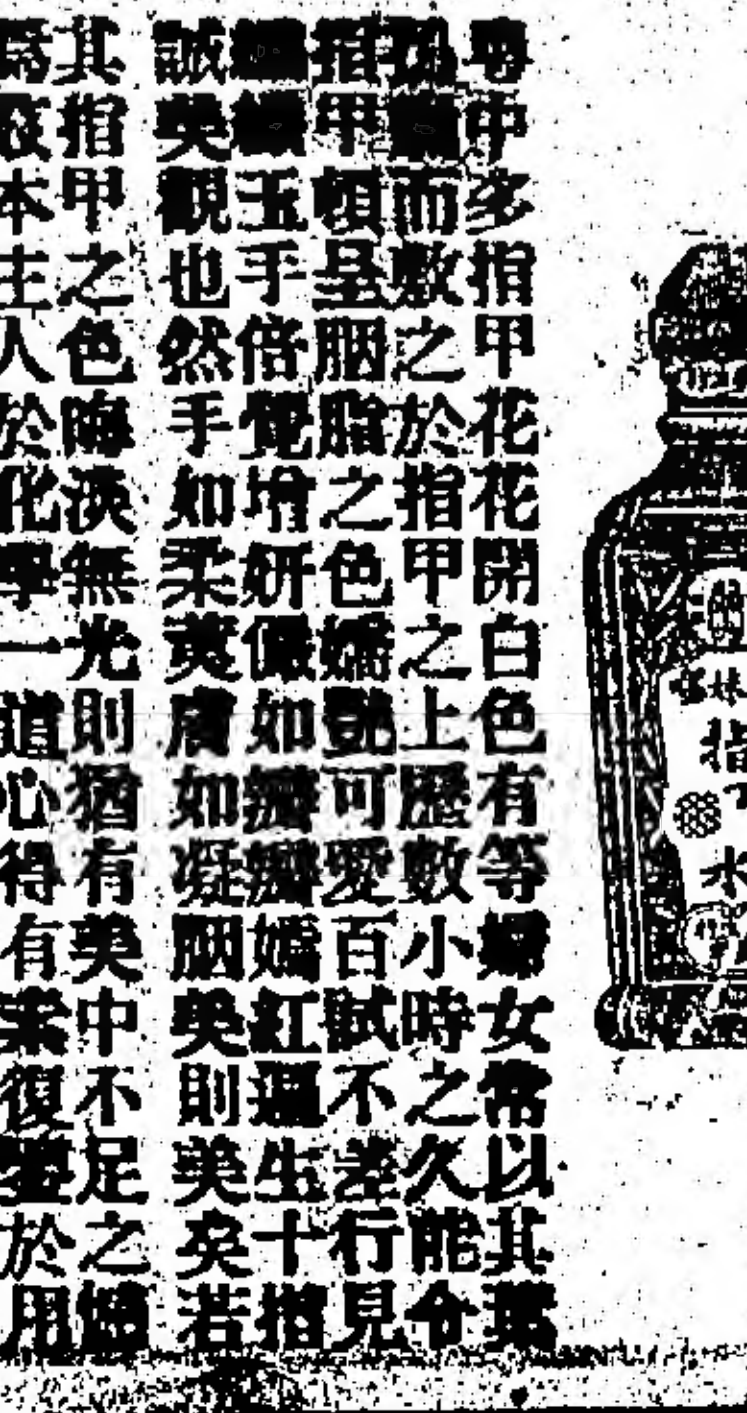 粵中多指甲花花開白色有等婦女常以其瓣
搗爛而敷之於指甲之上歷數小時之久能令
指甲頓呈胭脂之色嬌艷可愛百試不差行見
纖纖玉手倍覺增妍儼如瓣瓣嬌紅遍生十指
誠美觀也然手如柔荑膚如凝胭美則美矣若
其指甲之色晦淡無光則猶有美中不足之憾
爲茲本主人於化學一道心得有素復鑒於用